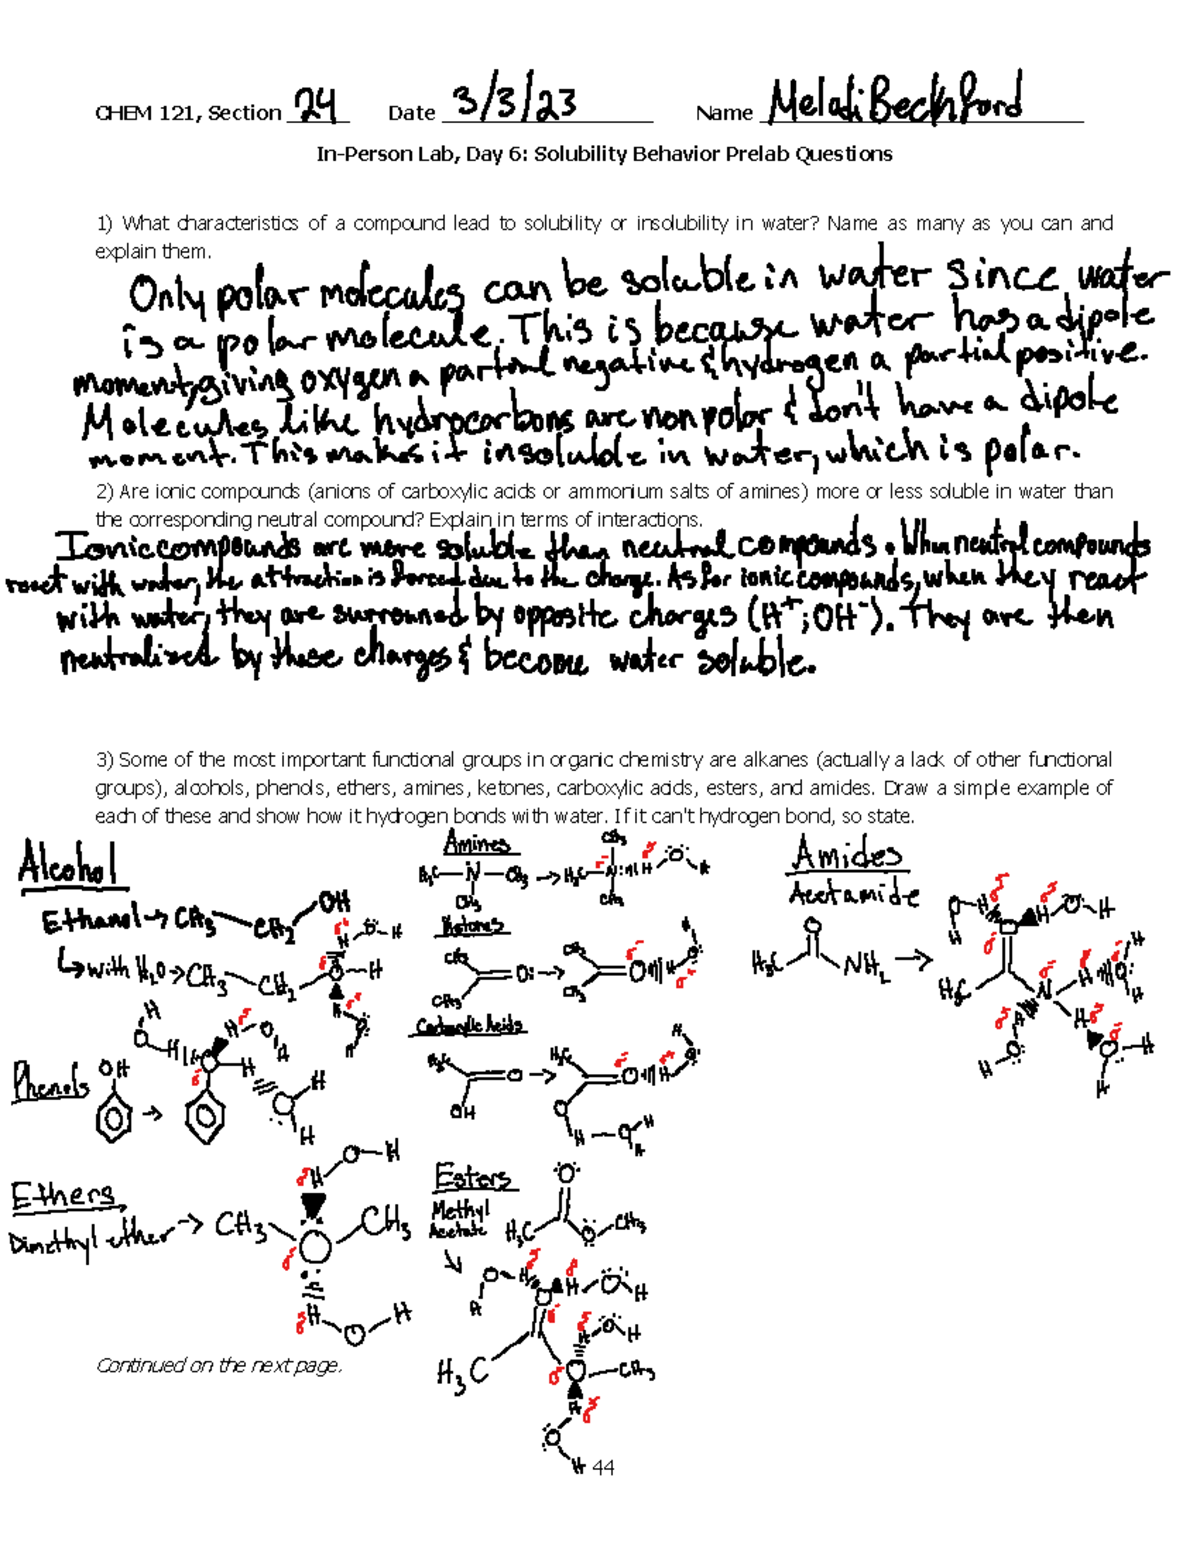 CHEM 121, Section 24 Date 3/3/23 Name Meladi Beckford
In-Person Lab, Day 6: Solubility Behavior Prelab Questions
1) What characteristics of a compound lead to solubility or insolubility in water? Name as many as you can and
explain them.
Only polar molecules can be soluble in water since water
is a polar molecule. This is because water has a dipole
moment, giving oxygen a partial negative & hydrogen a partial positive.
Molecules like hydrocarbons are nonpolar & don't have a dipole
moment. This makes it insoluble in water, which is polar.
2) Are ionic compounds (anions of carboxylic acids or ammonium salts of amines) more or less soluble in water than
the corresponding neutral compound? Explain in terms of interactions.
Ionic compounds are more soluble than neutral compounds. When neutral compounds
react with water, the attraction is forced due to the charge. As for ionic compounds, when they react
with water, they are surrouned by opposite charges (H⁺; OH⁻). They are then
neutralized by these charges & become water soluble.
3) Some of the most important functional groups in organic chemistry are alkanes (actually a lack of other functional
groups), alcohols, phenols, ethers, amines, ketones, carboxylic acids, esters, and amides. Draw a simple example of
each of these and show how it hydrogen bonds with water. If it can't hydrogen bond, so state.
Alcohol
Ethanol → CH₃ CH₂ OH
↳ with H₂O → CH₃ CH₂ O H
Phenols
OH
Ethers
Dimethyl ether → CH₃ O CH₃
Amines
H₃C N CH₃ → H₃C N H O H
CH₃ CH₃ CH₃
Ketones
CH₃ O → CH₃ O H O H
CH₃ CH₃
Carboxylic Acids
H₃C O → H₃C O H O H
OH O H O H H
Esters
Methyl
Acetate
H₃C O O CH₃
H₃C O O CH₃
Amides
Acetamide
H₃C O NH₂ →
H₃C O N H H
Continued on the next page.
44